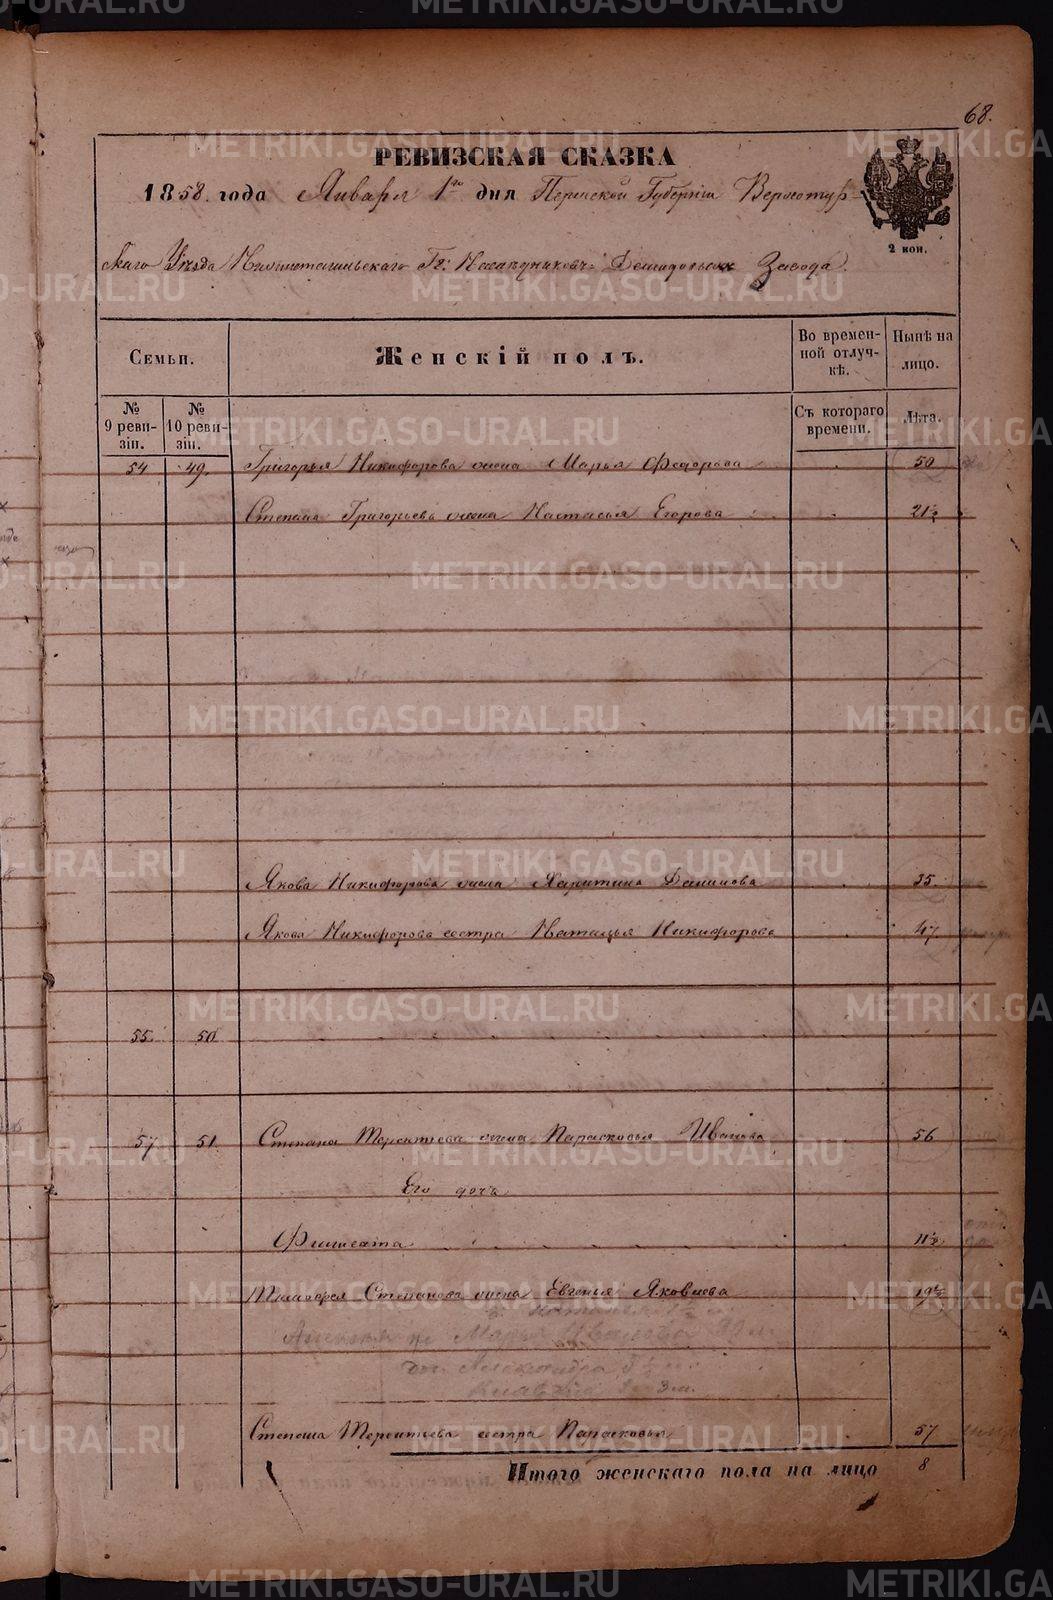 68.
РЕВИЗСКАЯ СКАЗКА
1858. года Января 1го дня Пермской Губерніи Верхотур-
скаго Уѣзда Нижнетагильскаго Гг: Наслѣдниковъ Демидовыхъ Завода.
2 коп.
Семьи.
Женскій полъ.
Во времен-
ной отлуч-
кѣ.
Нынѣ на
лицо.
№
9 реви-
зіи.
№
10 реви-
зіи.
Съ котораго
времени.
Лѣта.
54 49. Григорья Никифорова жена Марья Федорова 50
Степана Григорьева жена Настасья Егорова 21½
Якова Никифорова жена Харитина Данилова 35.
Якова Никифорова сестра Наталья Никифорова 47.
55. 50
57 51. Степана Терентьева жена Парасковья Иванова 56
Его дочь
11½
Степанова жена Евгенья Яковлева 19½
Марья Ивановна
Александра
3 м.
Степана Терентьева сестра Парасковья 57
Итого женскаго пола на лицо 8
METRIKI.GASO-URAL.RU